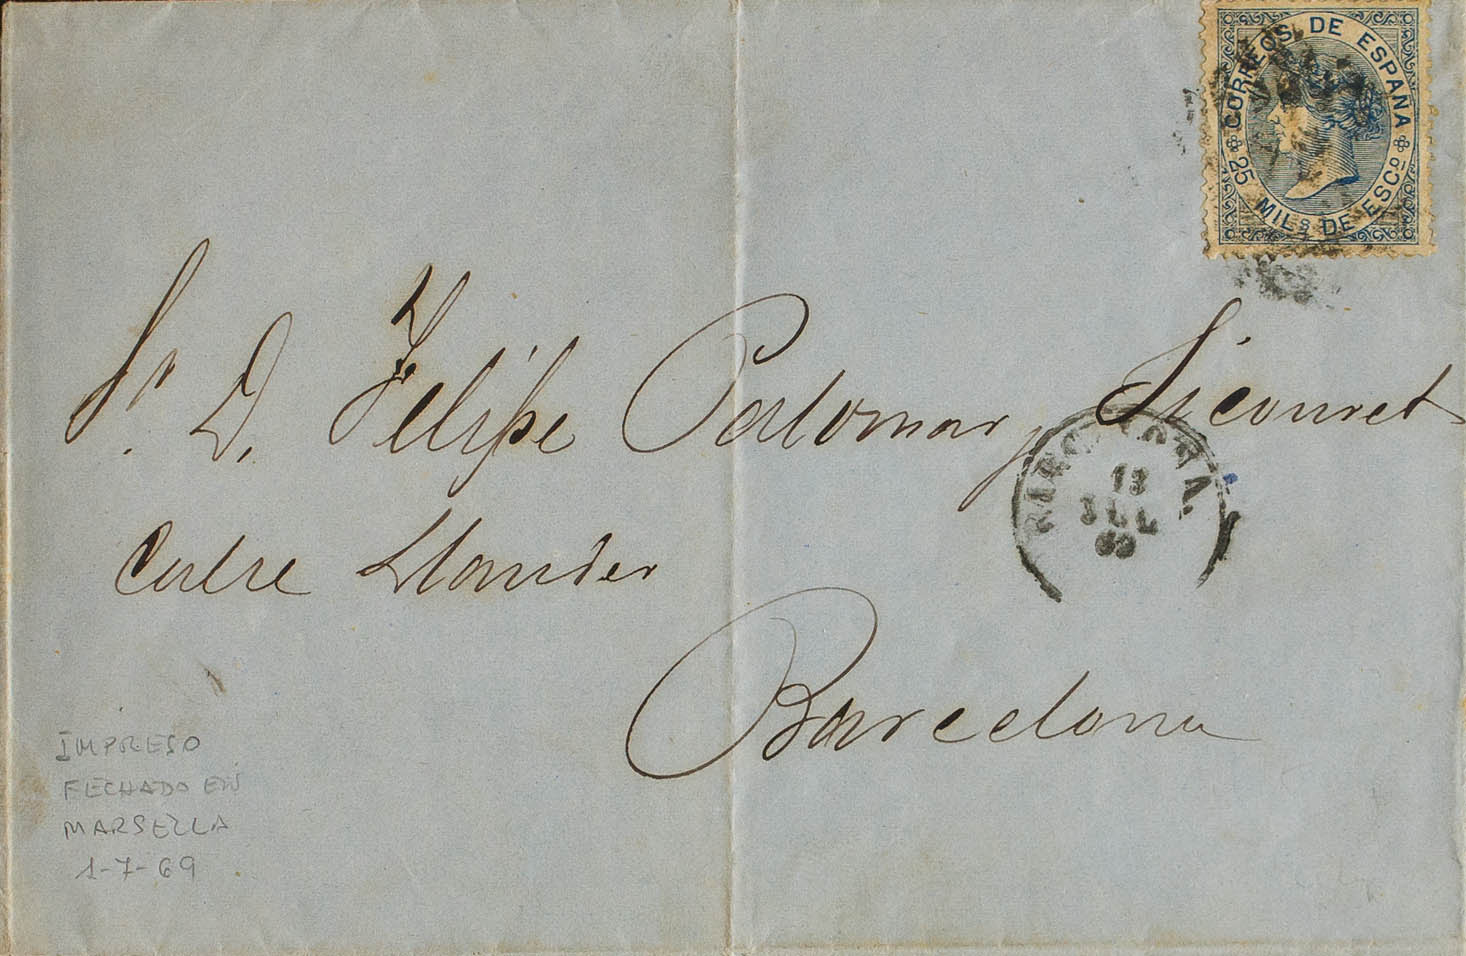 CORREOS DE ESPAÑA
25 MILS DE ESCO
Sr. D. Felipe Palomar, Sicouret
Calle Llauder
BARCELONA
13
JUL
69
Barcelona
IMPRESO
FECHADO EN
MARSELLA
1-7-69